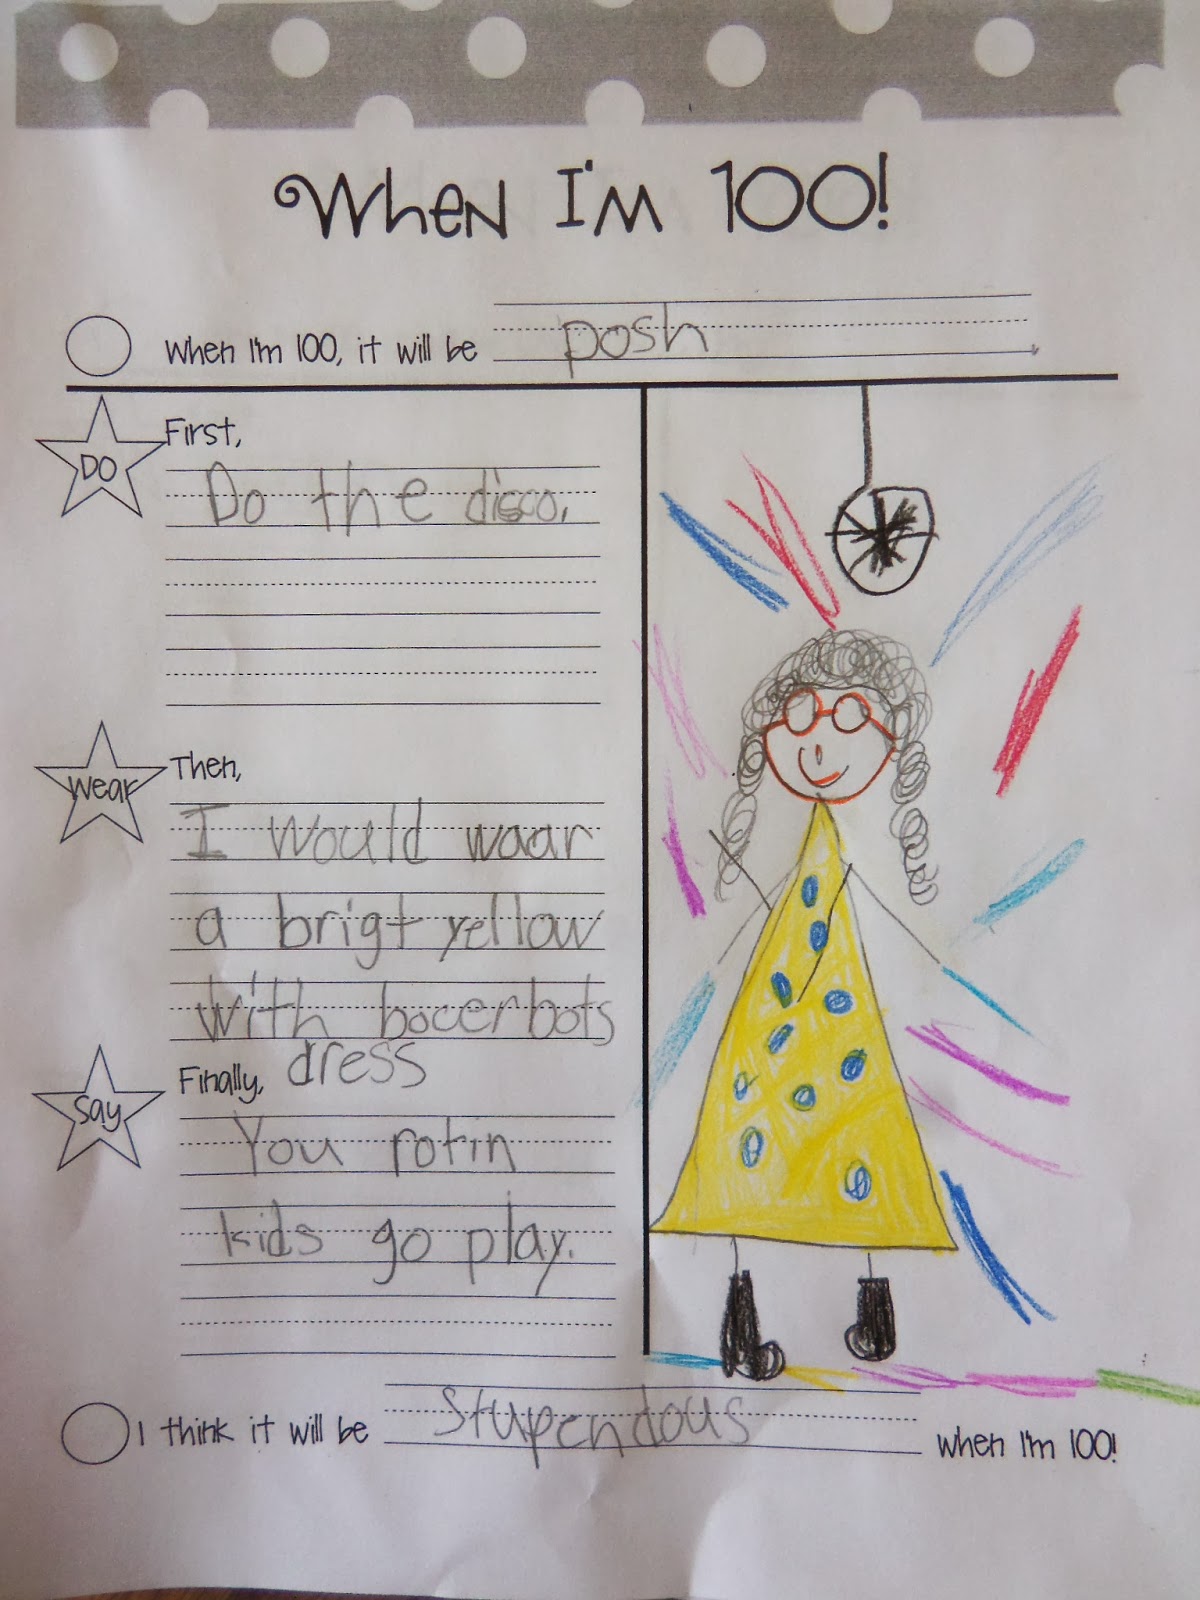 When I'm 100!
When I'm 100, it will be posh
DO
First,
Do the disco.
wear
Then,
I would waar
a brigt yellow
with bocerbots
dress
say
Finally,
You rotin
kids go play.
I think it will be stupendous when I'm 100!